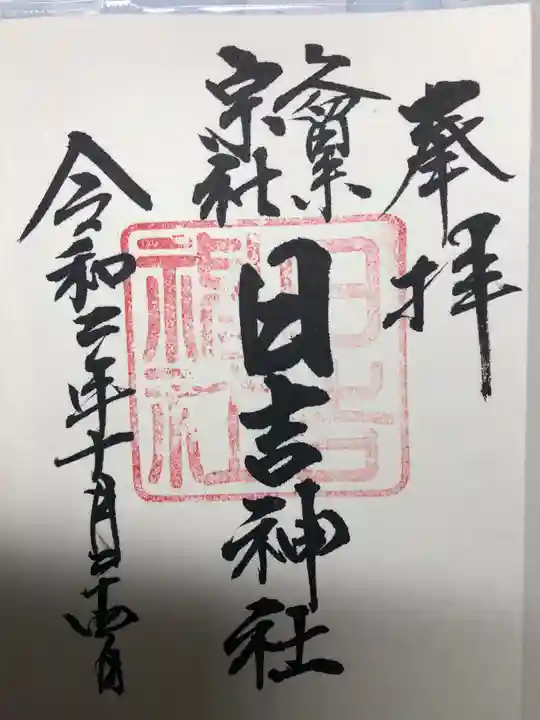 奉拝
久留米
宗社
日吉神社
令和二年十月二十四日
日吉
神社